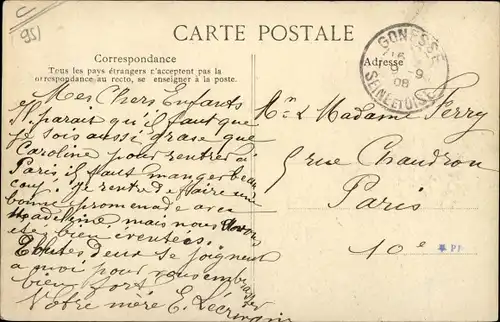 C
951
CARTE POSTALE
Correspondance
Tous les pays étrangers n'acceptent pas la
correspondance au recto, se renseigner à la poste.
Adresse
GONESSE
9-9
08
SEINE ET OISE
Mes Chers Enfants
Il parait qu'il faut que
je sois aussi grase que
Caroline pour rentrer a
Paris, il faut manger beau
coup. Je rentre d faire une
bonne promenade avec
Madeleine mais nous avons
étés bien éventees.
Toutes deux se joignent
a moi pour vous embrasser
bien fort
Votre mère E.
Mr & Madame Ferry
5 rue Chaudron
Paris
10e